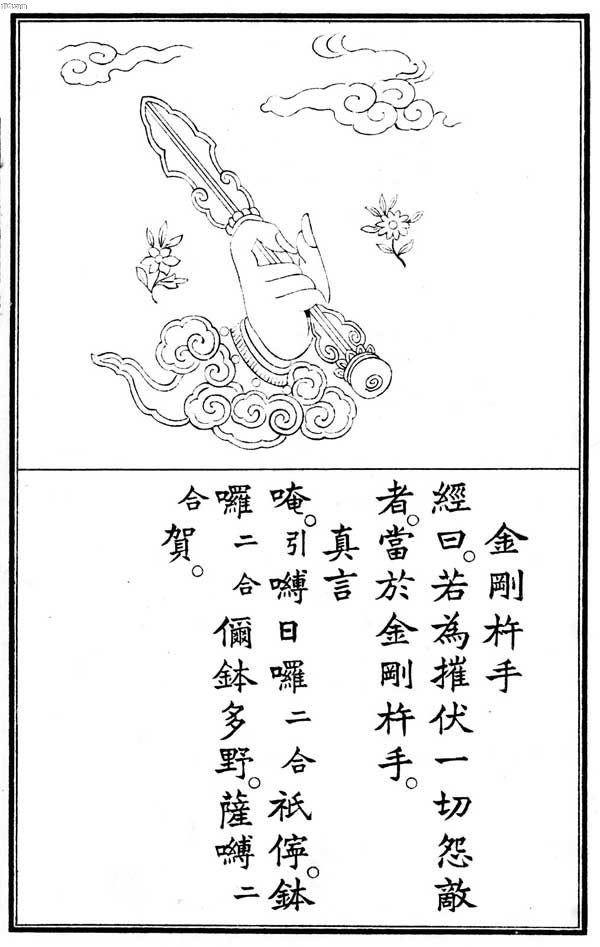 金剛杵手
經曰。若為摧伏一切怨敵
者。當於金剛杵手。
真言
唵。引嚩日囉二合祇儜。鉢
囉二合儞鉢多野。薩嚩二
合賀。